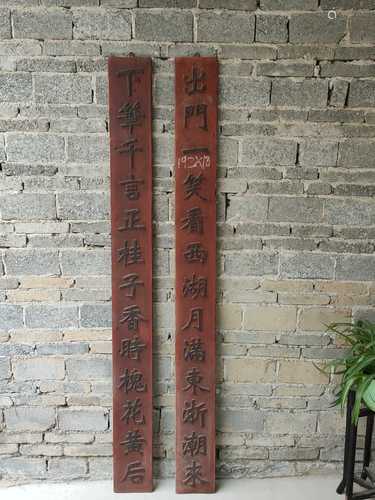 下筆千言正桂子香時槐花黃后
出門一笑看西湖月滿東浙潮來
192X18